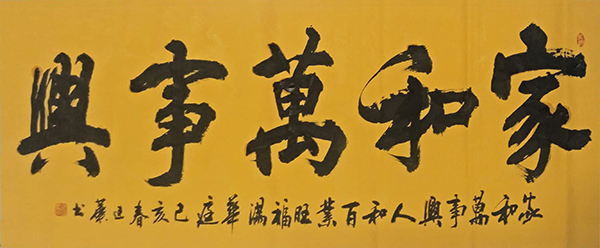 家和萬事興
家和萬事興人和百業旺福滿華庭己亥春廷蘭书